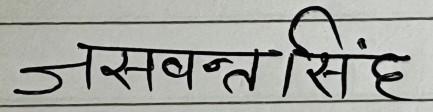 जसवन्त सिंह